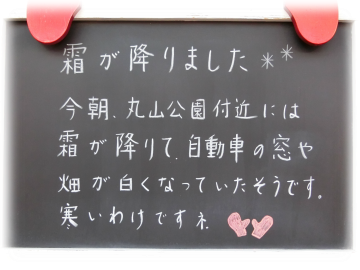 霜が降りました**
今朝、丸山公園付近には
霜が降りて、自動車の窓や
畑が白くなっていたそうです。
寒いわけですネ